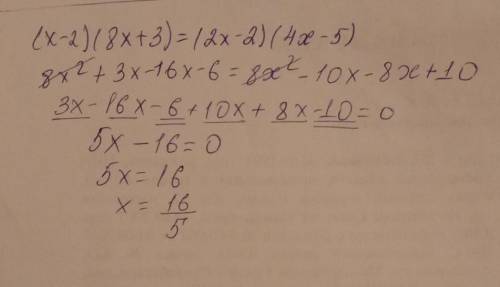 (x-2)(8x+3)=(2x-2)(4x-5)
8x²+3x-16x-6=8x²-10x-8x+10
3x-16x-6+10x+8x-10=0
5x-16=0
5x=16
x=16/5